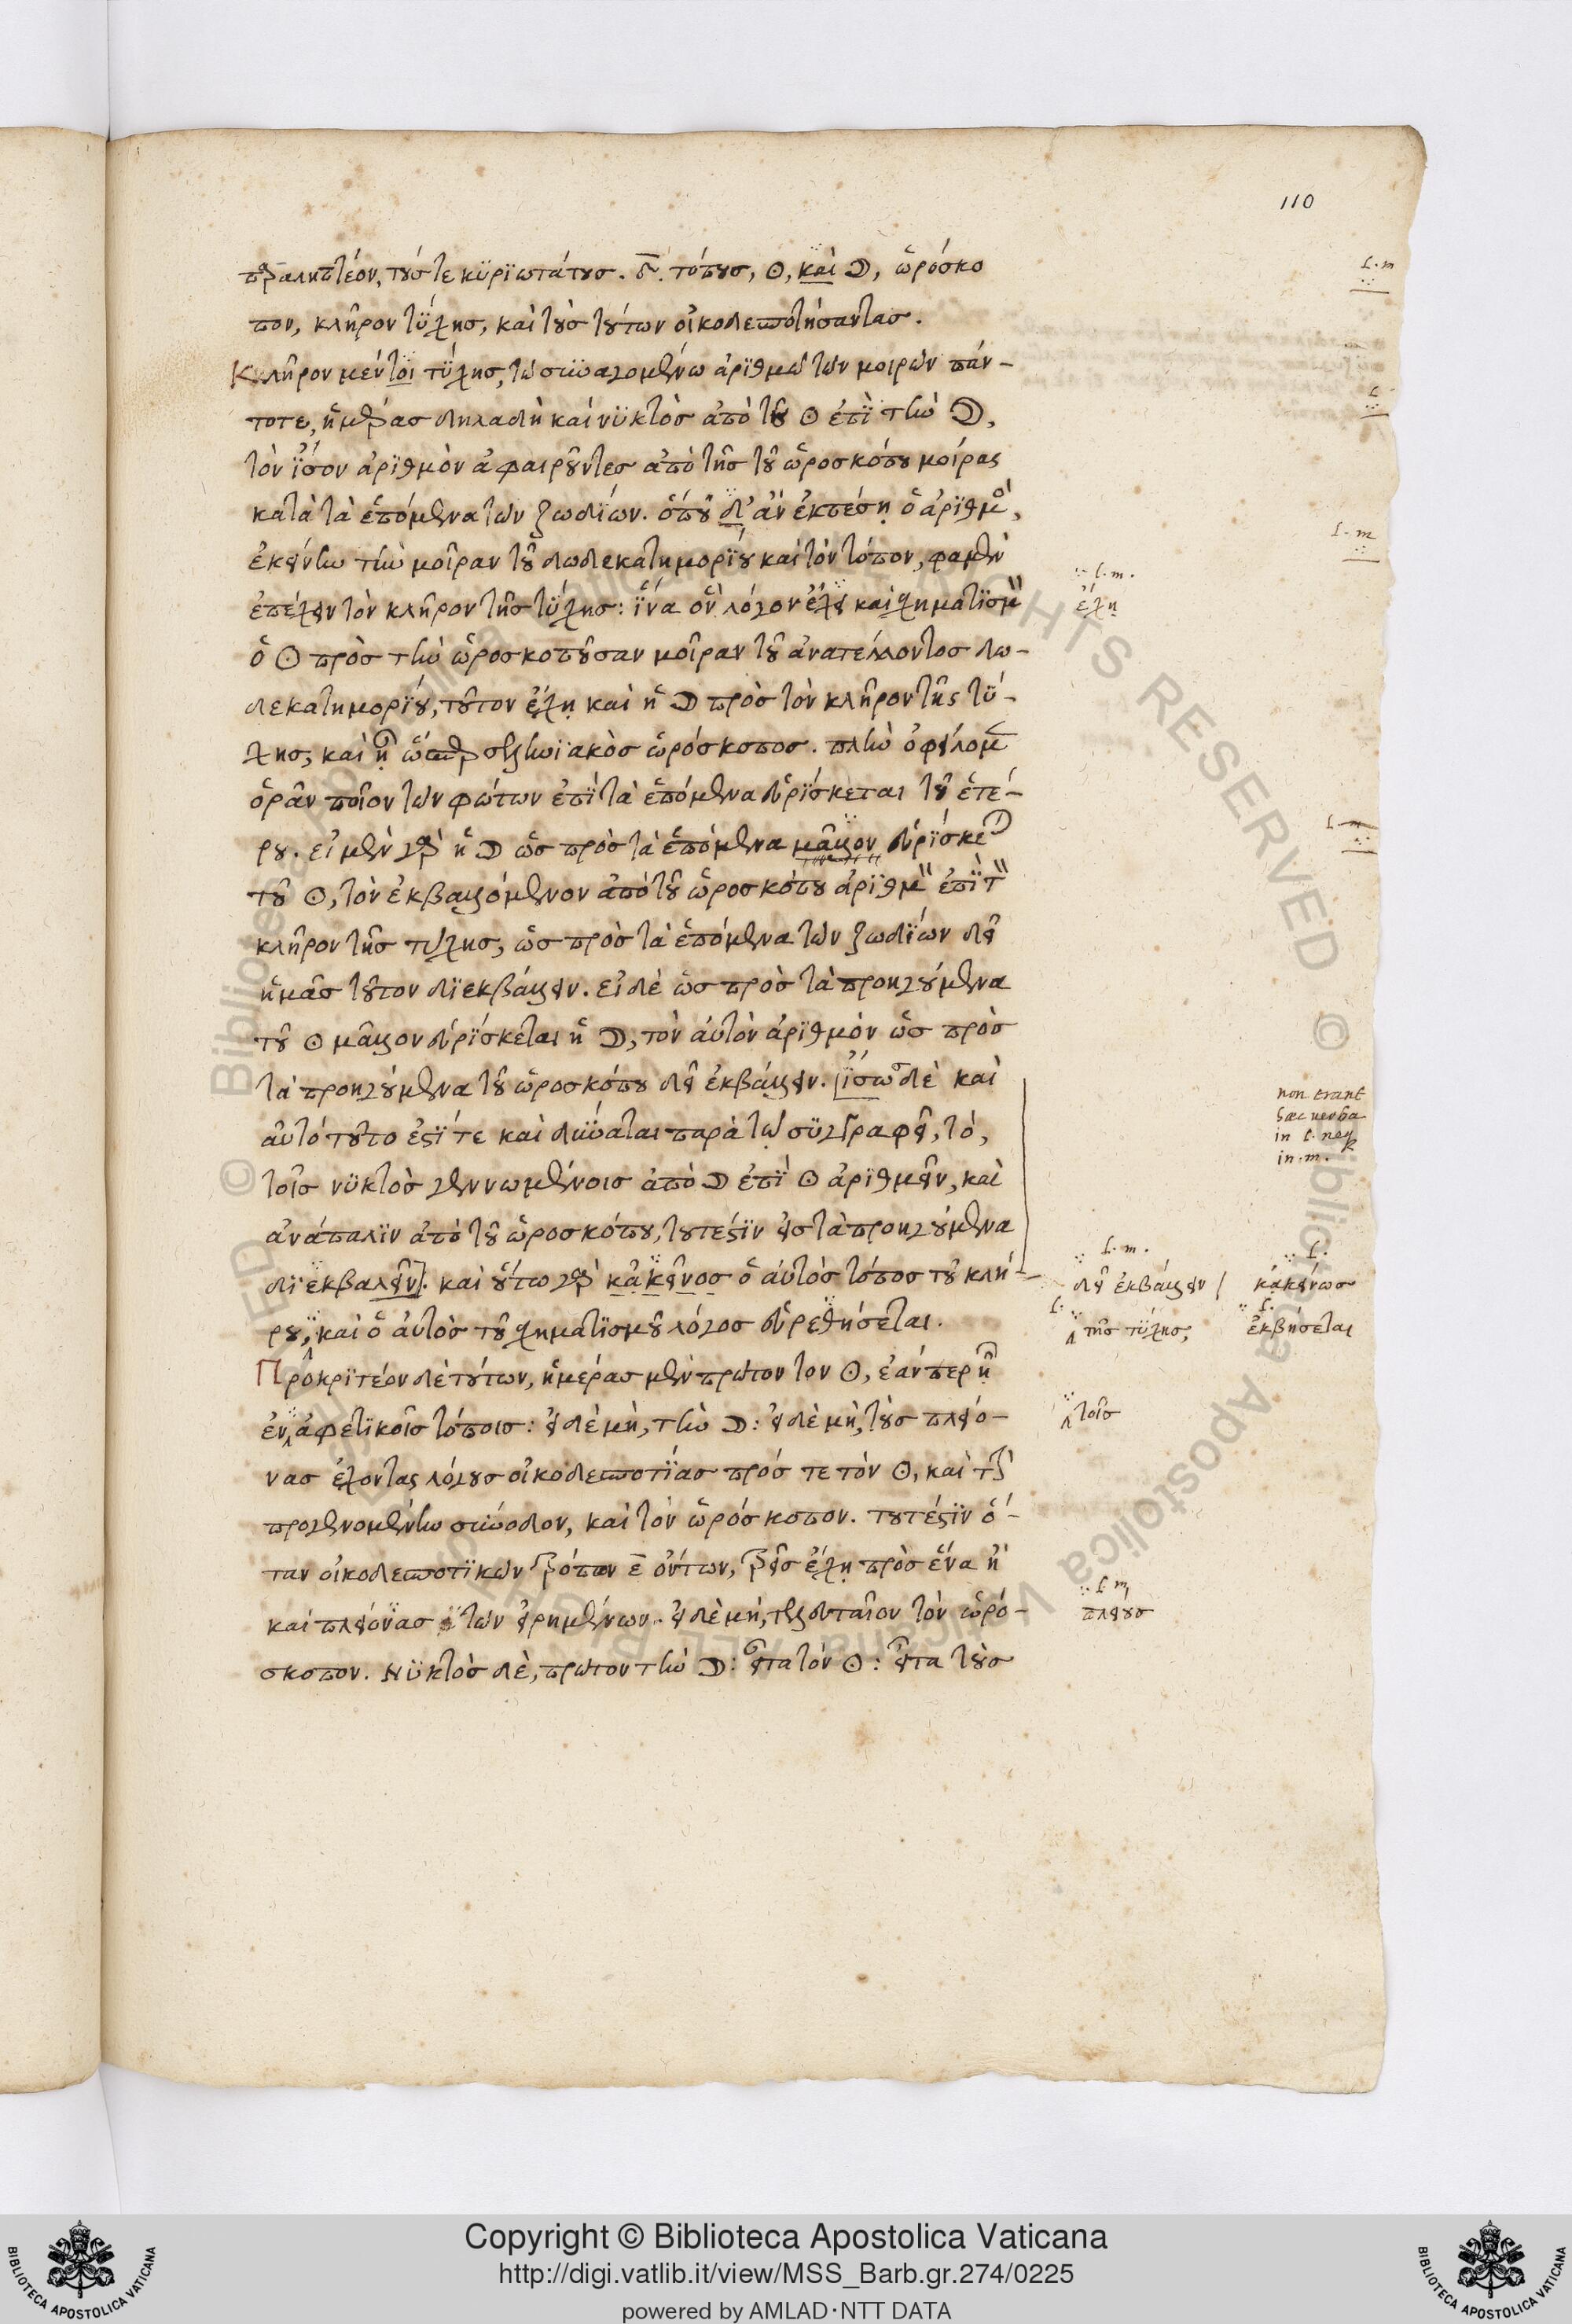 110
παραληπτέον, τούς τε κϋρϊωτάτους. δ̅. τόπους, ☉, καὶ ☽, ὡρόσκο
πον, κλῆρον τύχης, καὶ τοὺς τούτων οἰκοδεσποτήσαντας.
Κλῆρον μέντοι τύχης, τῶ συναγομένω ἀρϊθμῶ τῶν μοιρῶν πάν-
τοτε, ἡμέρας δηλαδὴ καὶ νϋκτὸς ἀπὸ τοῦ ☉ ἐπὶ τὴν ☽,
τὸν ἴσον ἀρϊθμὸν ἀφαιροῦντες ἀπὸ τῆς τοῦ ὡροσκόπου μοίρας
κατὰ τὰ ἑπόμενα τῶν ζωδίων. ὅπου δ' ἂν ἐκπέσῃ ὁ ἀρϊθμὸς,
ἐκείνην τὴν μοῖραν τοῦ δωδεκατημορίου καὶ τὸν τόπον, φαμὲν
ἐπέχειν τὸν κλῆρον τῆς τύχης: ἵνα ὃν λόγον ἔχει καὶ σχηματϊσμὸν
ὁ ☉ πρὸς τὴν ὡροσκοποῦσαν μοῖραν τοῦ ἀνατέλλοντος δω-
δεκατημορίου, τοῦτον ἔχῃ καὶ ἡ ☽ πρὸς τὸν κλῆρον τῆς τύ-
χης, καὶ ᾖ ὥσπερ σεληνϊακὸς ὡρόσκοπος. πλὴν ὀφείλομεν
ὁρᾶν ποῖον τῶν φώτων ἐπὶ τὰ ἑπόμενα εὑρίσκεται τοῦ ἑτέ-
ρου. εἰ μὲν γὰρ ἡ ☽ ὡς πρὸς τὰ ἑπόμενα μᾶλλον εὑρίσκεται
τοῦ ☉, τὸν ἐκβαλλόμενον ἀπὸ τοῦ ὡροσκόπου ἀρϊθμὸν ἐπὶ τὸν
κλῆρον τῆς τύχης, ὡς πρὸς τὰ ἑπόμενα τῶν ζωδίων δεῖ
ἡμᾶς τοῦτον δϊεκβάλλειν. εἰ δὲ ὡς πρὸς τὰ προηγούμενα
τοῦ ☉ μᾶλλον εὑρίσκεται ἡ ☽, τὸν αὐτὸν ἀρϊθμὸν ὡς πρὸς
τὰ προηγούμενα τοῦ ὡροσκόπου δεῖ ἐκβάλλειν. [ἴσως δὲ καὶ
αὐτὸ τοῦτο ἐστί τε καὶ δύναται παρὰ τῷ συγγραφεῖ, τό,
τοῖς νϋκτὸς γεννωμένοις ἀπὸ ☽ ἐπὶ ☉ ἀρϊθμεῖν, καὶ
ἀνάπαλϊν ἀπὸ τοῦ ὡροσκόπου, τουτέστϊν εἰς τὰ προηγούμενα
δϊεκβαλεῖν]. καὶ οὕτω γὰρ κἀκεῖνος ὁ αὐτὸς τόπος τοῦ κλή-
ρου, καὶ ὁ αὐτὸς τοῦ σχηματϊσμοῦ λόγος εὑρεθήσεται.
Προκρϊτέον δὲ τούτων, ἡμέρας μὲν πρῶτον τὸν ☉, ἐάνπερ ᾖ
ἐν ἀφετϊκοῖς τόποις: εἰ δὲ μὴ, τὴν ☽: εἰ δὲ μὴ, τοὺς πλείο-
νας ἔχοντας λόγους οἰκοδεσποτίας πρός τε τὸν ☉, καὶ τὴν
προγενομένην σύνοδον, καὶ τὸν ὡρόσκοπον. τουτέστϊν ὅ-
ταν οἰκοδεσποτϊκῶν τρόπων ε̅ ὄντων, τρεῖς ἔχῃ πρὸς ἕνα ἢ
καὶ πλείονας τῶν εἰρημένων. εἰ δὲ μή, τελευταῖον τὸν ὡρό-
σκοπον. Νϋκτὸς δὲ, πρῶτον τὴν ☽: εἶτα τὸν ☉: εἶτα τοὺς
f. m
f. m
f. m.
ἔχῃ
non erant
haec uerba
in f. neq
in m.
f. m.
δεῖ ἐκβάλλειν /
f.
κἀκείνως
f.
τῆς τύχης,
f.
ἐκβήσεται
τοῖς
f. m
πλείους
Copyright © Biblioteca Apostolica Vaticana
http://digi.vatlib.it/view/MSS_Barb.gr.274/0225
powered by AMLAD·NTT DATA